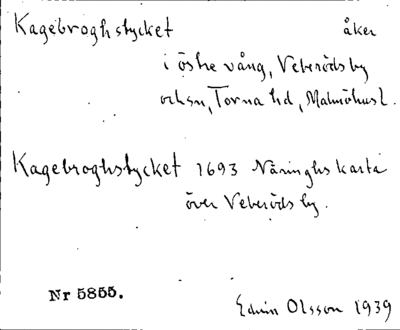 Kagebroghstycket åker
i östre vång, Veberöds by
och sn, Torna hd, Malmöhus l.
Kagebroghstycket 1693 Näringhs karta
över Veberöds by.
Nr 5855.
Edvin Olsson 1939